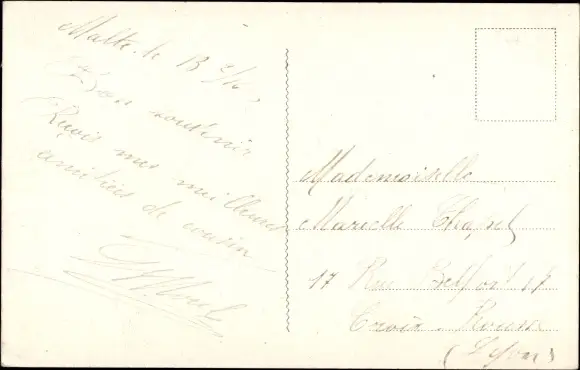 Malte. le 13
Bon souvenir
Reçois mes meilleures
amitiés de cousin
Mademoiselle
Marielle Chapel
17 Rue Belfort 17
Croix-Rousse
(Lyon)